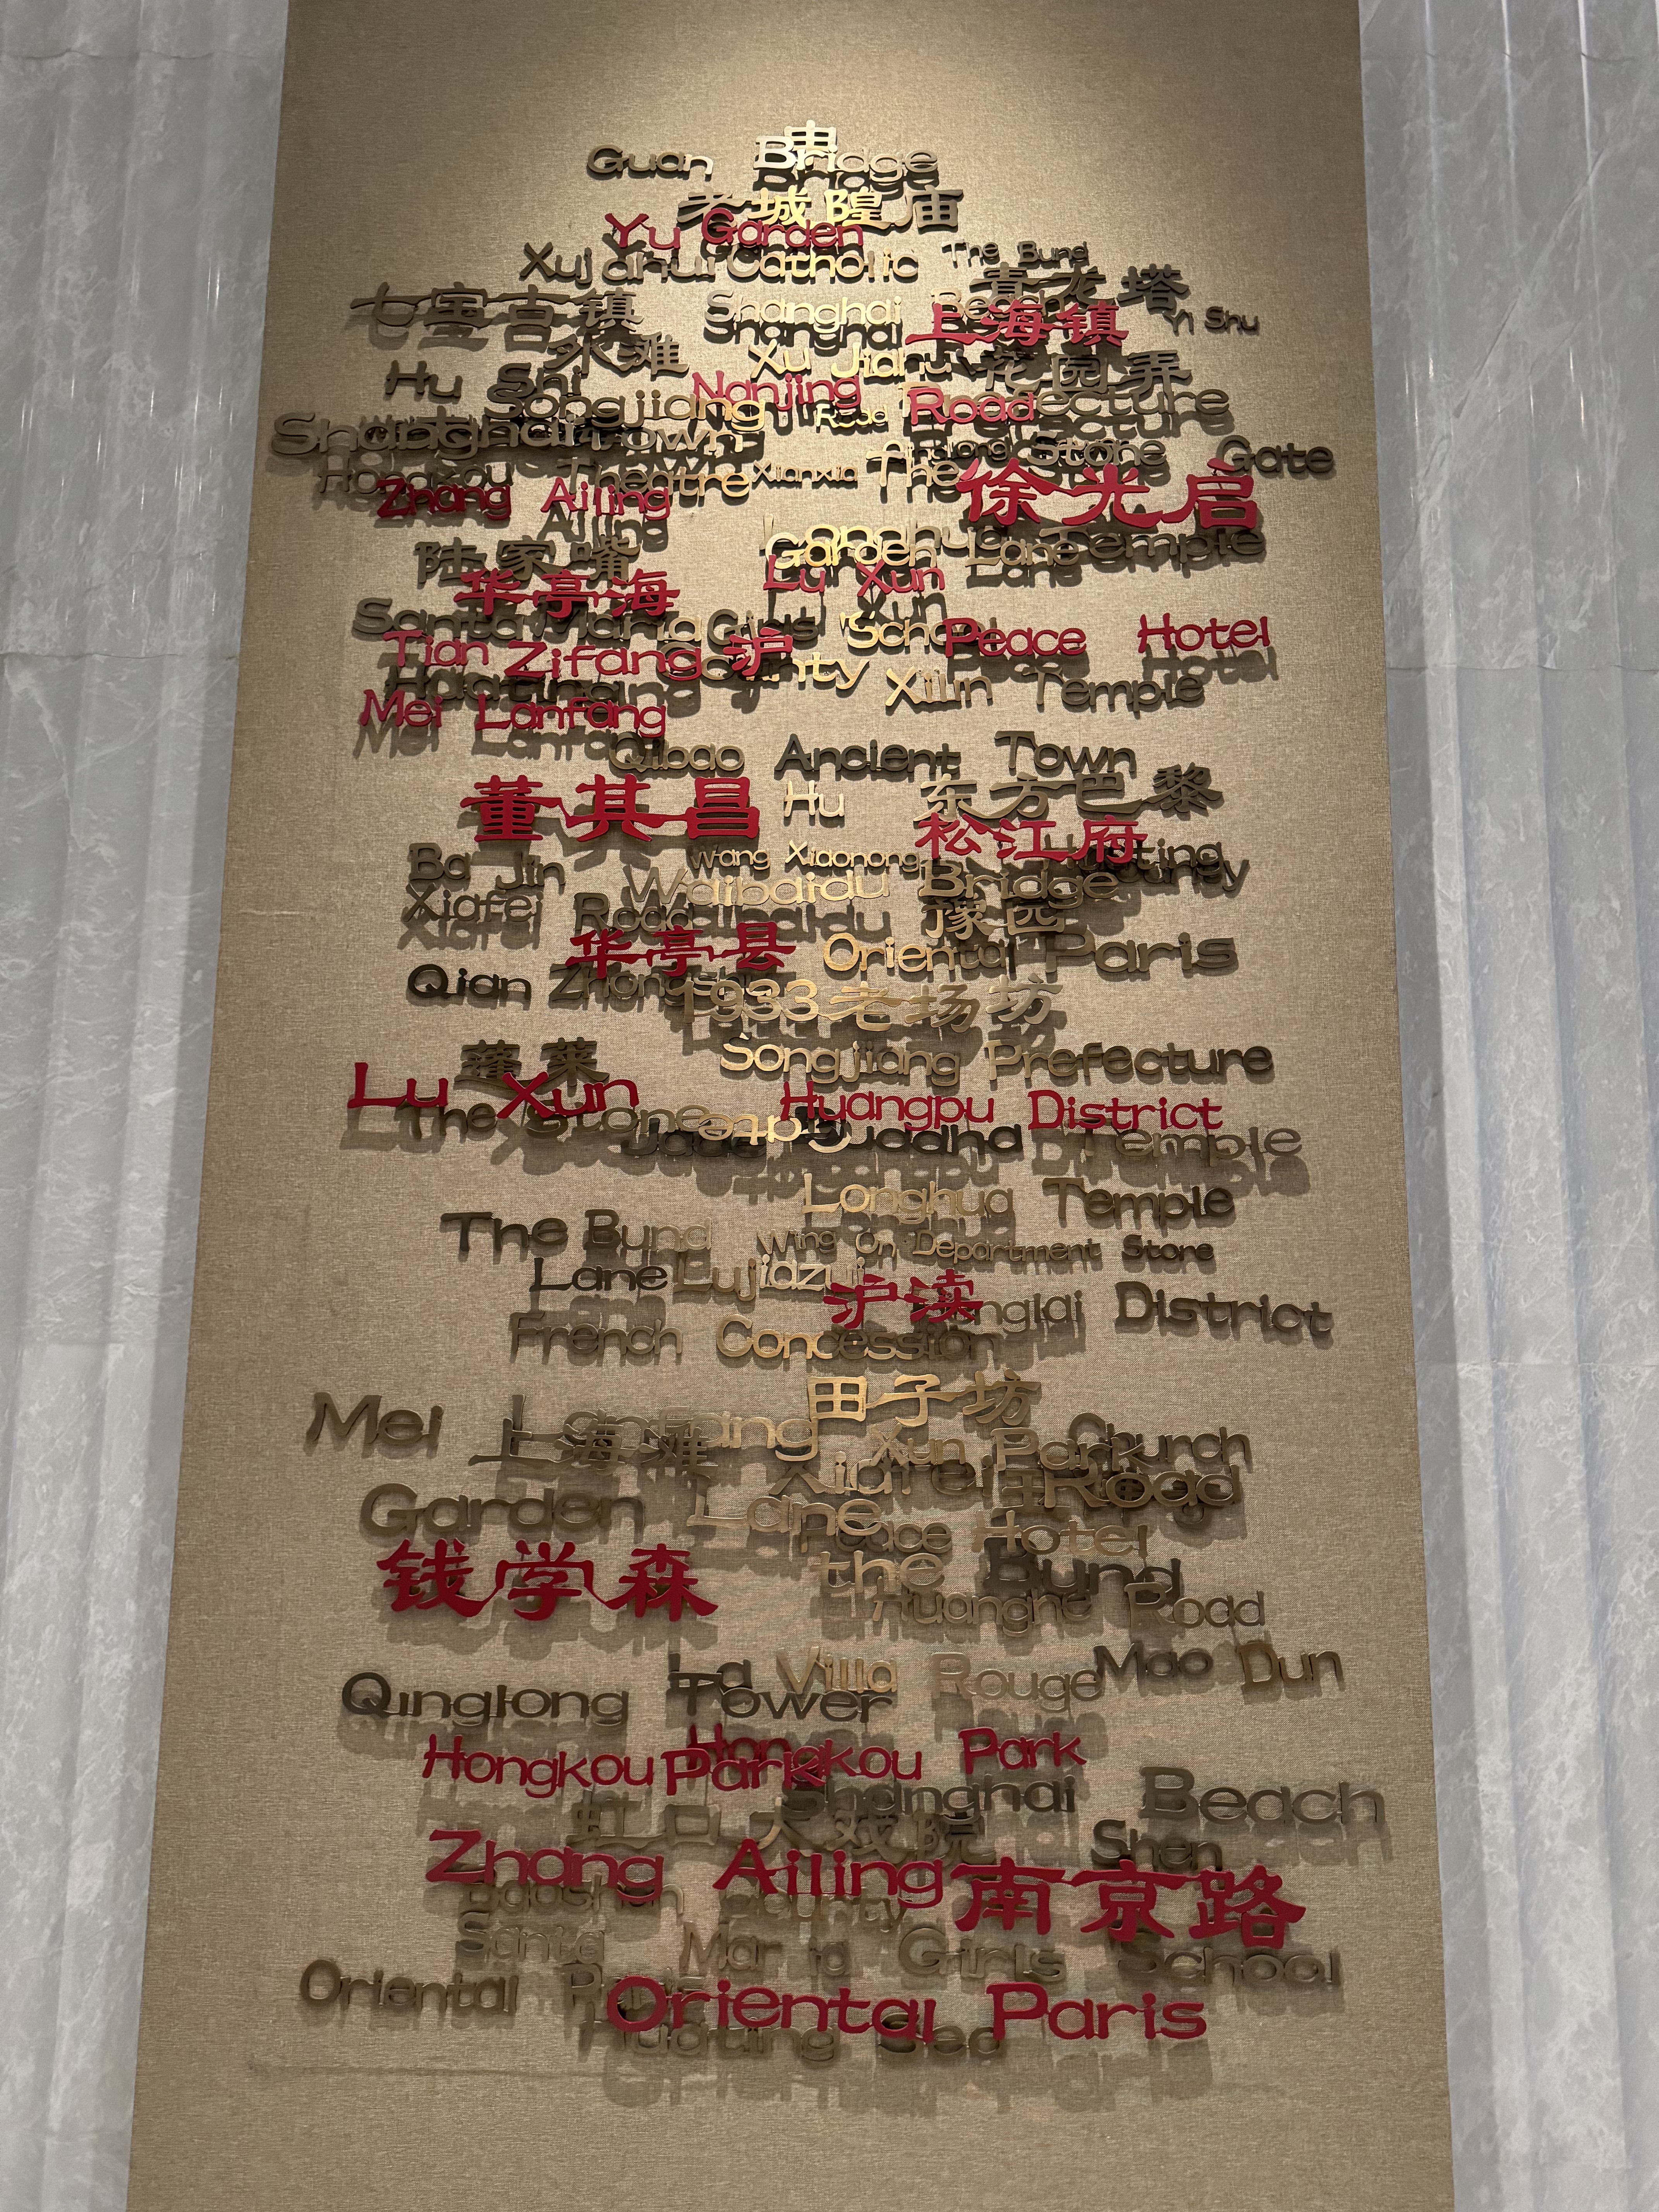 申
Guan Bridge
老城隍庙
Yu Garden
The Bund
Xujiahui Catholic
青龙塔
七宝古镇
Shanghai Beach
上海镇
Yi Shu
外滩
Xu Jiahui
花园弄
Hu Shi
Nanjing Road
Songjiang
Road
Shanghai Town
Stone Gate
Hongkou Theatre
Xianxia
The
徐光启
Zhang Ailing
Ailing
Longhua Temple
陆家嘴
Garden Lane
华亭海
Lu Xun
Santa Maria Girls School
Peace Hotel
Tian Zifang
沪
Xilin Temple
Mei Lanfang
Qibao Ancient Town
董其昌
Hu
东方巴黎
松江府
Ba Jin
Wang Xiaonong
Waibaidu Bridge
Xiafei Road
华亭县
Oriental Paris
Qian
1933老场坊
蓬莱
Songjiang Prefecture
Lu Xun
Huangpu District
The Stone Gate
Jade Buddha Temple
Longhua Temple
The Bund
Wing On Department Store
Lane
Lujiazui
沪渎
District
French Concession
田子坊
Mei Lanfang
上海滩
Xun Park
Church
Xiafei Road
Garden Lane
Peace Hotel
钱学森
the Bund
Road
La Villa Rouge
Mao Dun
Qinglong Tower
Hongkou Park
Hongkou Park
Shanghai Beach
虹口大戏院
Shen
Zhang Ailing
南京路
Baoshan County
Santa Maria Girls School
Oriental Paris
Oriental Paris
Huating Sea